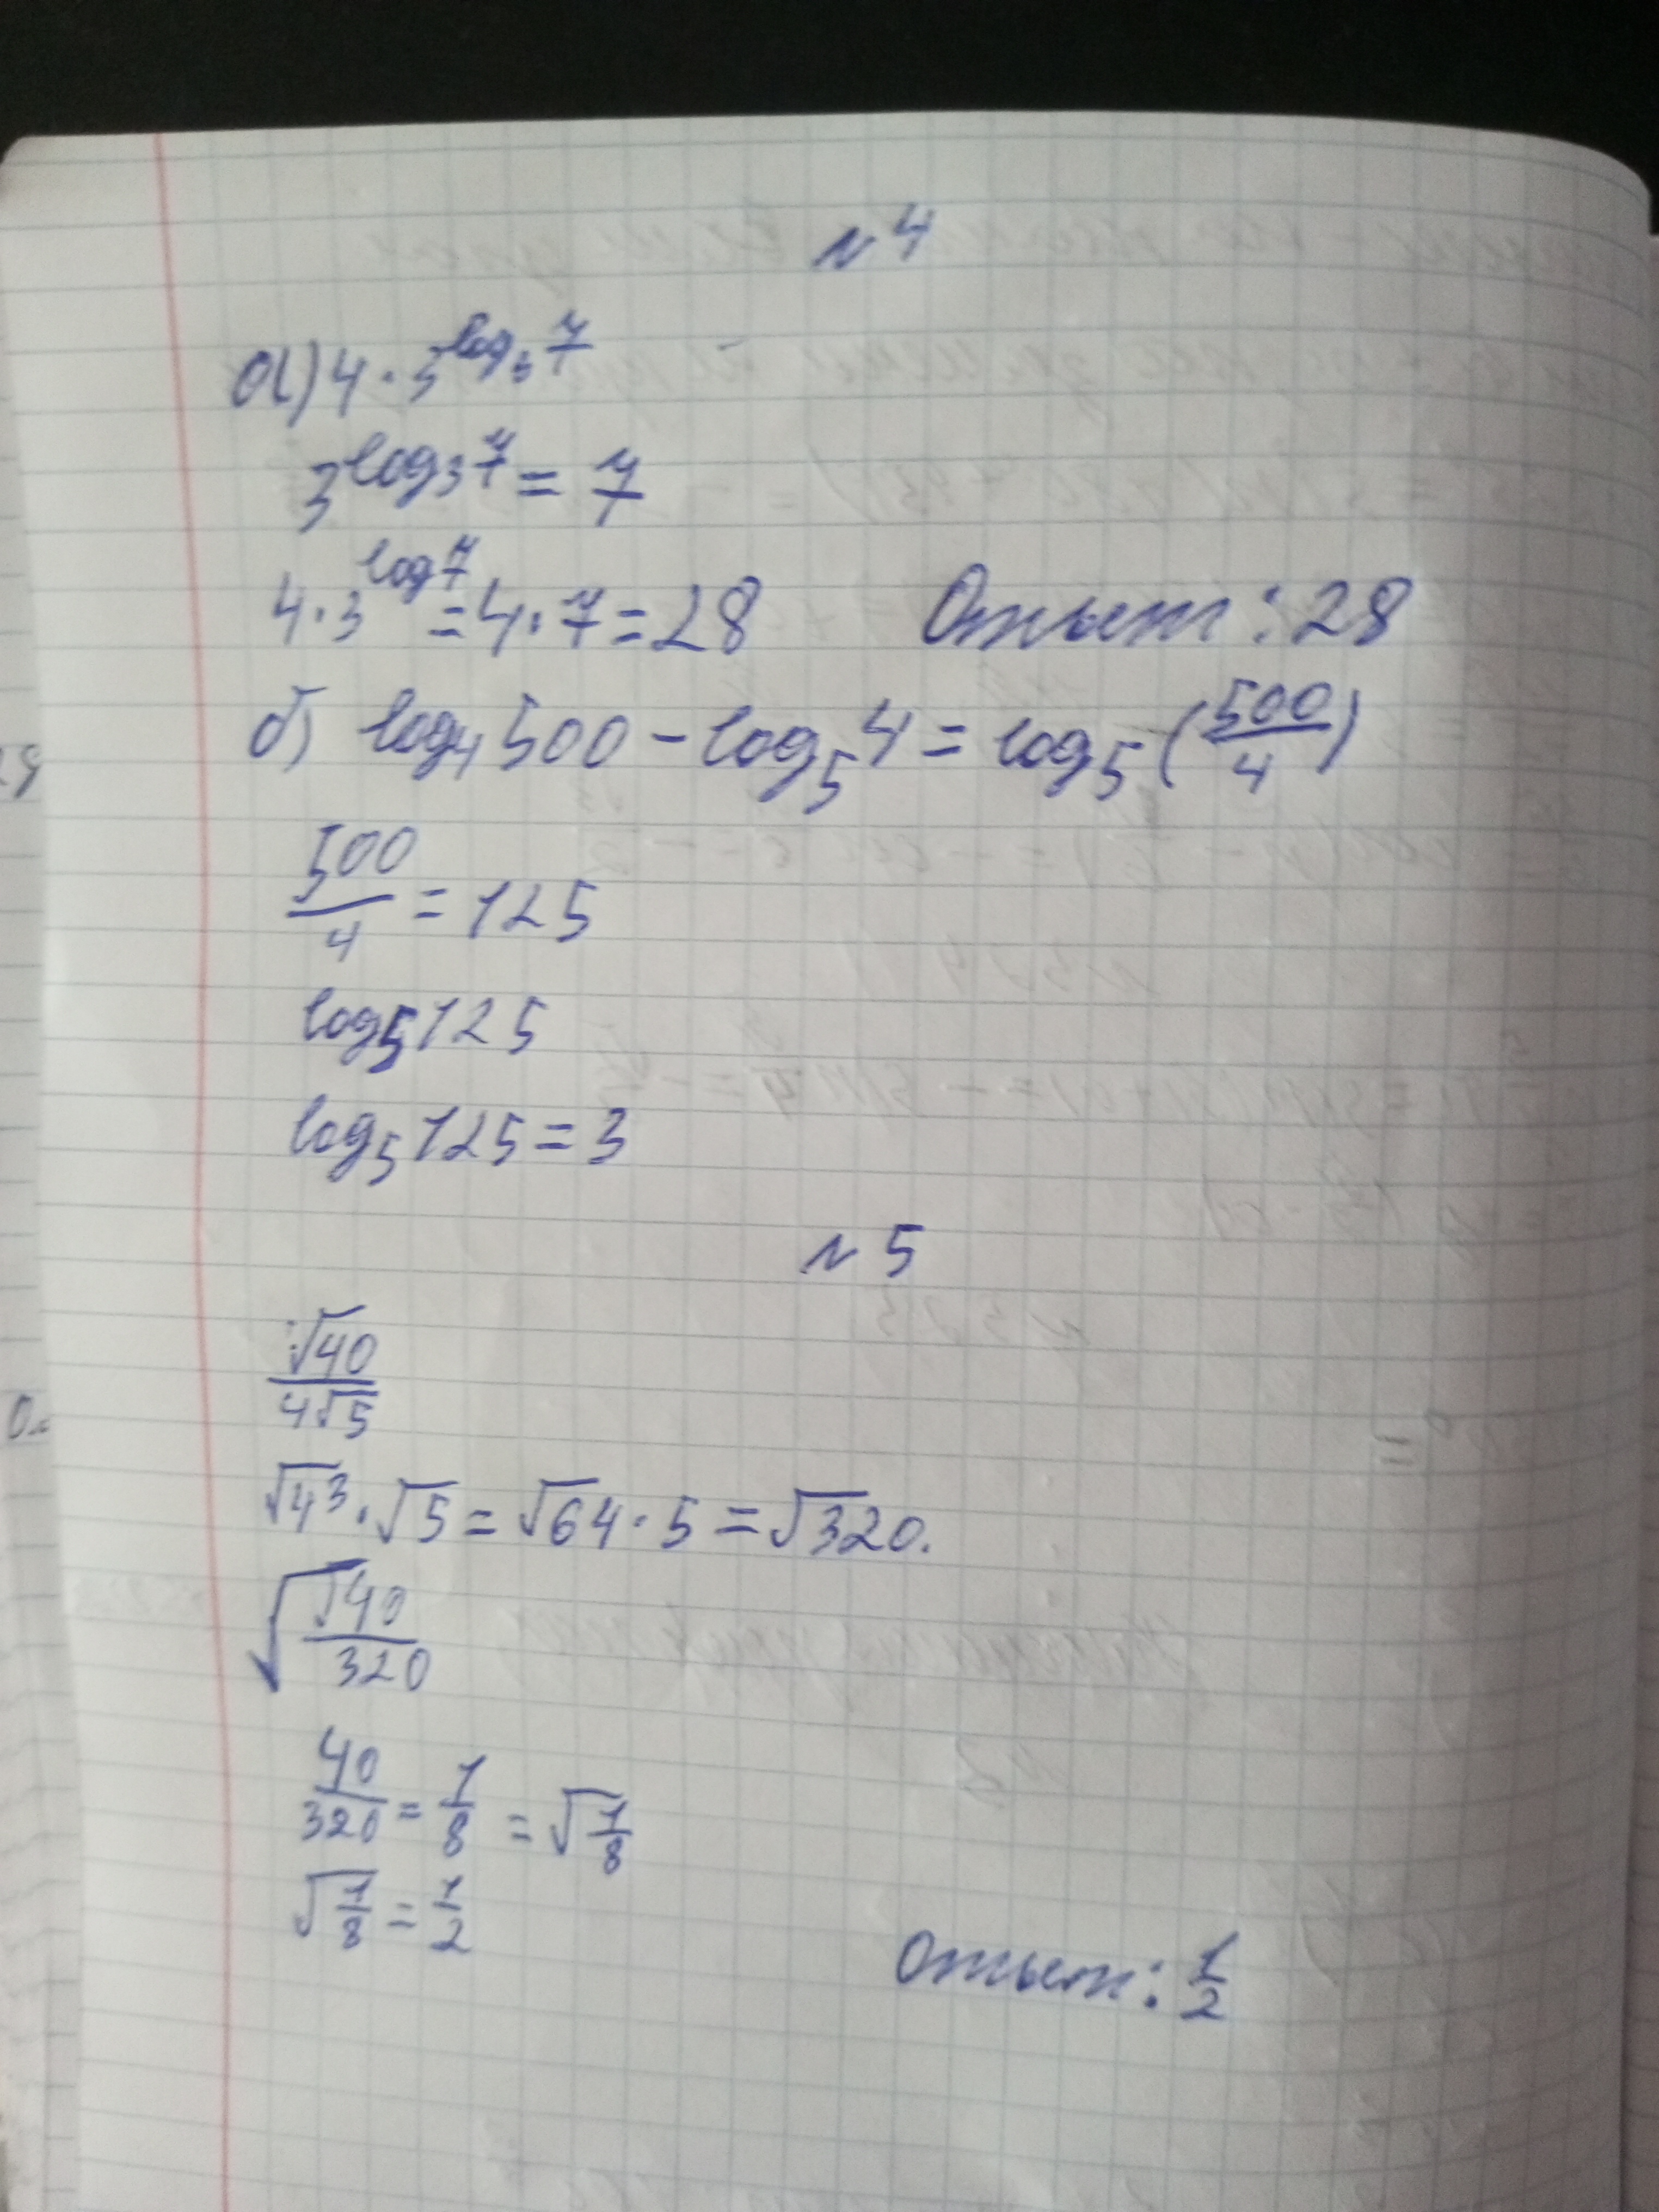 №4
а) 4 · 3^log₃7
3^log₃7 = 7
4 · 3^log7 = 4 · 7 = 28 Ответ: 28
б) log₄500 - log₅4 = log₅(500/4)
500/4 = 125
log₅125
log₅125 = 3
№5
√40/4√5
√4³ · √5 = √64 · 5 = √320.
√(√40/320)
40/320 = 1/8 = √1/8
√1/8 = 1/2
Ответ: 1/2